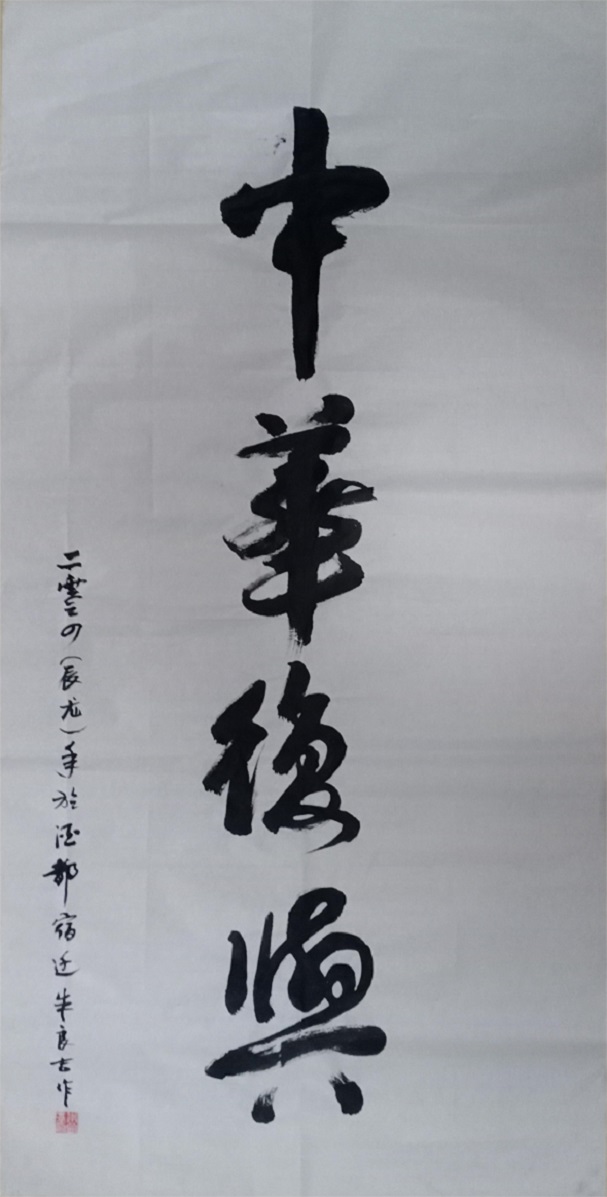 中華復興
二零二四（辰龙）年於酒都宿迁朱良志作